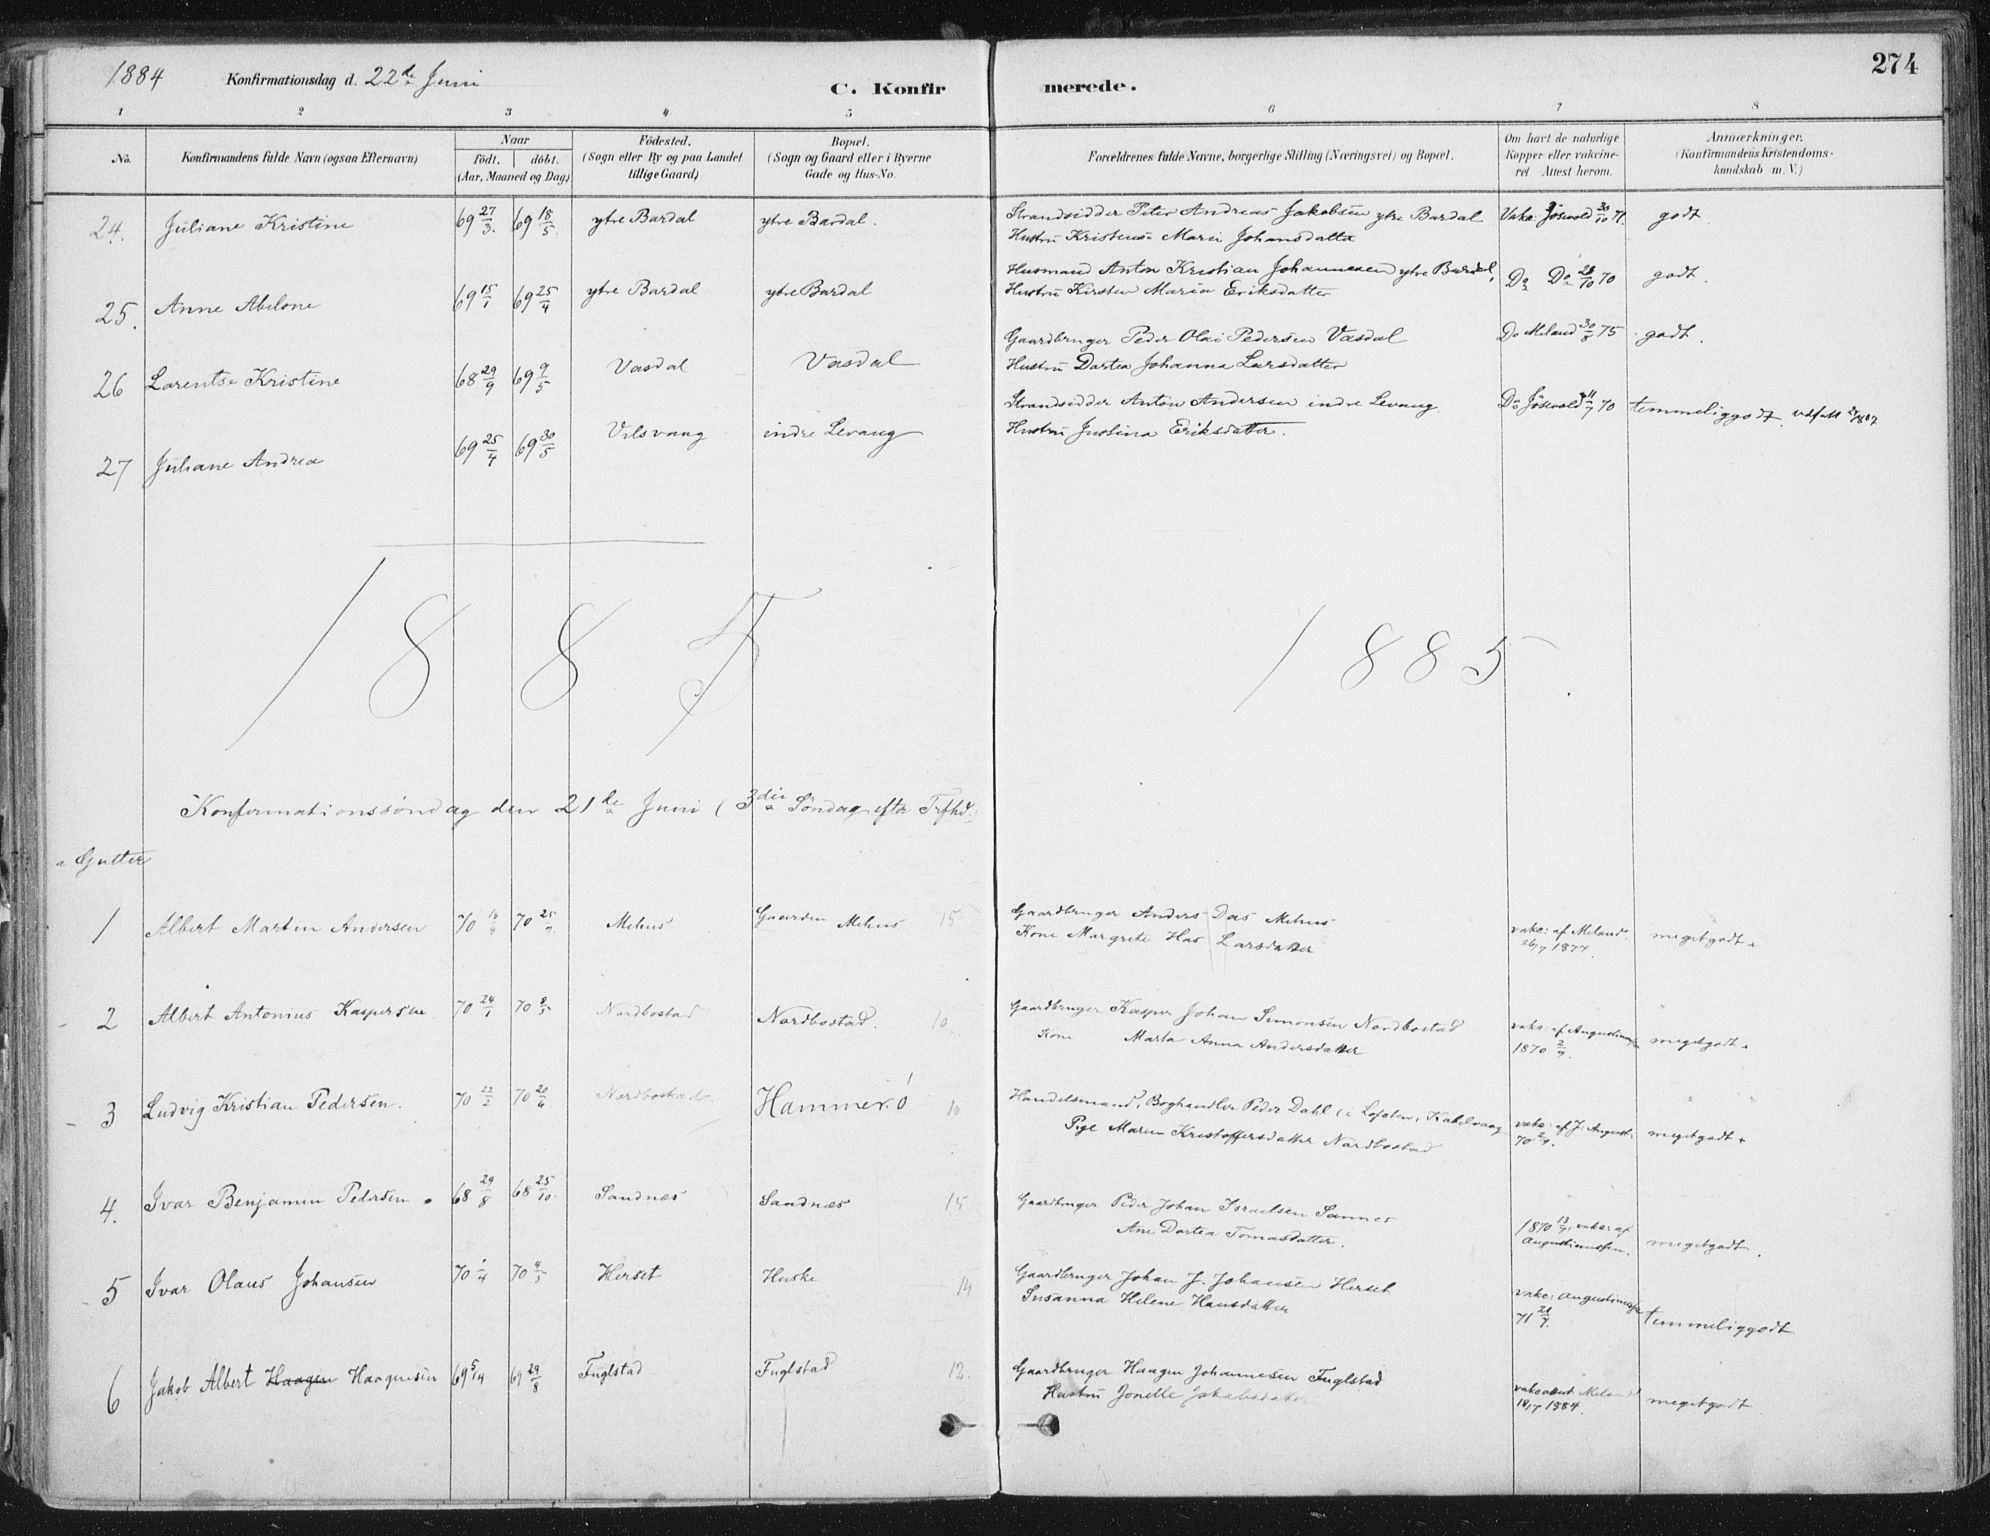 1884 Konfirmationsdag d. 22de Juni C. Konfirmerede. 274
1 2 3 4 5 6 7 8
No. Konfirmandens fulde Navn (ogsaa Efternavn) Naar født. døbt. (Aar, Maaned og Dag) Fødested. (Sogn eller By og paa Landet tillige Gaard) Bopæl. (Sogn og Gaard eller i Byerne Gade og Hus-No. Forældrenes fulde Navne, borgerlige Stilling (Næringsvei) og Bopæl. Om havt de naturlige Kopper eller vakcineret Attest herom. Anmærkninger. (Konfirmandens Kristendomskundskab m. V.)
24. Juliane Kristine 69 27/3. 69 18/5. ytre Bardal ytre Bardal. Strandsidder Peter Andreas Jakobsen ytre Bardal Vakc: Jøsevold 30/10 71. godt
Hustru Kristense Marie Johansdatter
25. Anne Abelone 69 15/1 69 25/4 ytre Bardal ytre Bardal Husmand Anton Kristian Johannesen ytre Bardal, Do Do 28/10 70 godt.
Hustru Kirsten Maria Eriksdatter
26 Lorentse Kristine 68 29/9 69 9/5 Vasdal Vasdal Gaardbruger Peder Olai Pedersen Vasdal Do Meland 30/8 75 godt.
Hustru Dortea Johanna Larsdatter
27 Juliane Andrea 69 25/4 69 30/5 Ulsvaag indre Levang Strandsidder Anton Andersen indre Levang Do Jøsevold 11/7 70 temmeliggodt.
Hustru Justina Eriksdatter.
1885 1885
Konfirmationssøndag den 21de Juni (3die Søndag efter Trfhd.
a Gutter
1 Albert Martin Andersen 70 70 Mehus Gaarden Mehus 15 Gaardbruger Anders Das Mehus vakc: af Meland 26/7 1877. megetgodt.
Kone Margrete Has Larsdatter
2 Albert Antonius Kaspersen 70 24/1 70 8/5 Nordbostad Nordbostad. 10. Gaardbruger Kasper Johan Simonsen Nordbostad vakc: af 1870 2/9. megetgodt.
Kone Marta Anna Andersdatter
3 Ludvig Kristian Pedersen. 70 22/2 70 20/6 Nordbostad. Hammerö 10 Handelsmand, Boghandler Peder Dahl (i Lofoten, Kabelvaag vakc: af J: August: 70 2/9. megetgodt.
Pige Maren Kristoffersdatter Nordbostad
4. Ivar Benjamin Pedersen. 68 29/8 68 25/10. Sandnæs Sandnæs 15 Gaardbruger Peder Johan Israelsen Sannes 1870 13/9, vakc: af Augustinussen. megetgodt.
Ane Dortea Tomasdatter.
5 Ivar Olaus Johansen 70 1/4 70 4/5 Herset Huske 14 Gaardbruger Johan J. Johansen Herset vakc: 71 21/7. temmeliggodt
Susanna Helene Hansdatter
6 Jakob Albert Haagen Haagensen 69 5/4 69 29/8 Fuglstad Fuglstad 12. Gaardbruger Haagen Johannesen Fuglstad vakcattest Meland 18/7 1884. megetgodt
Hustru Jonelle Jakobsdatter